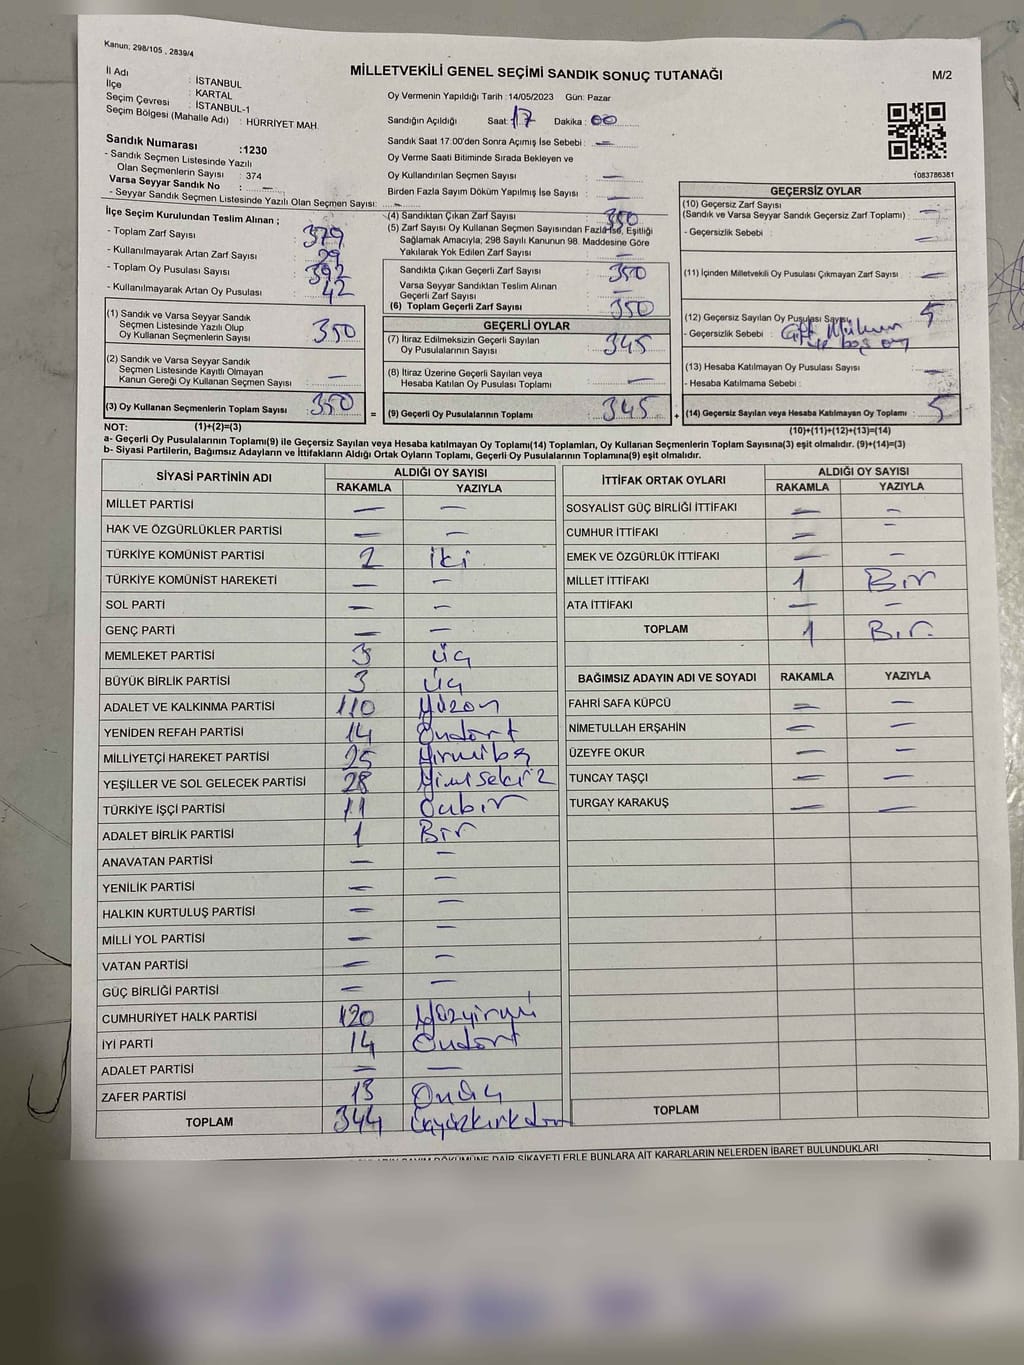 Kanun: 298/105 , 2839/4
MİLLETVEKİLİ GENEL SEÇİMİ SANDIK SONUÇ TUTANAĞI
M/2
İl Adı : İSTANBUL
İlçe : KARTAL
Seçim Çevresi : İSTANBUL-1
Seçim Bölgesi (Mahalle Adı) : HÜRRİYET MAH.
Sandık Numarası :1230
- Sandık Seçmen Listesinde Yazılı
Olan Seçmenlerin Sayısı : 374
Varsa Seyyar Sandık No : —
- Seyyar Sandık Seçmen Listesinde Yazılı Olan Seçmen Sayısı: —
Oy Vermenin Yapıldığı Tarih :14/05/2023 Gün: Pazar
Sandığın Açıldığı Saat: 17 Dakika : 00
Sandık Saat 17:00'den Sonra Açımış İse Sebebi : —
Oy Verme Saati Bitiminde Sırada Bekleyen ve
Oy Kullandırılan Seçmen Sayısı : —
Birden Fazla Sayım Döküm Yapılmış İse Sayısı : —
1083786381
İlçe Seçim Kurulundan Teslim Alınan ;
- Toplam Zarf Sayısı : 379
- Kullanılmayarak Artan Zarf Sayısı : 29
- Toplam Oy Pusulası Sayısı : 392
- Kullanılmayarak Artan Oy Pusulası : 42
(1) Sandık ve Varsa Seyyar Sandık
Seçmen Listesinde Yazılı Olup
Oy Kullanan Seçmenlerin Sayısı : 350
(2) Sandık ve Varsa Seyyar Sandık
Seçmen Listesinde Kayıtlı Olmayan
Kanun Gereği Oy Kullanan Seçmen Sayısı : —
(3) Oy Kullanan Seçmenlerin Toplam Sayısı : 350
(4) Sandıktan Çıkan Zarf Sayısı : 350
(5) Zarf Sayısı Oy Kullanan Seçmen Sayısından Fazla İse, Eşitliği
Sağlamak Amacıyla, 298 Sayılı Kanunun 98. Maddesine Göre
Yakılarak Yok Edilen Zarf Sayısı : —
Sandıkta Çıkan Geçerli Zarf Sayısı : 350
Varsa Seyyar Sandıktan Teslim Alınan
Geçerli Zarf Sayısı : —
(6) Toplam Geçerli Zarf Sayısı : 350
GEÇERLİ OYLAR
(7) İtiraz Edilmeksizin Geçerli Sayılan
Oy Pusulalarının Sayısı : 345
(8) İtiraz Üzerine Geçerli Sayılan veya
Hesaba Katılan Oy Pusulası Toplamı : —
= (9) Geçerli Oy Pusulalarının Toplamı : 345
GEÇERSİZ OYLAR
(10) Geçersiz Zarf Sayısı
(Sandık ve Varsa Seyyar Sandık Geçersiz Zarf Toplamı) : —
- Geçersizlik Sebebi : —
(11) İçinden Milletvekili Oy Pusulası Çıkmayan Zarf Sayısı : —
(12) Geçersiz Sayılan Oy Pusulası Sayısı : 5
- Geçersizlik Sebebi : Çift Mühür
ve boş oy
(13) Hesaba Katılmayan Oy Pusulası Sayısı : —
- Hesaba Katılmama Sebebi :
+ (14) Geçersiz Sayılan veya Hesaba Katılmayan Oy Toplamı : 5
NOT: (1)+(2)=(3)
(10)+(11)+(12)+(13)=(14)
a- Geçerli Oy Pusulalarının Toplamı(9) ile Geçersiz Sayılan veya Hesaba katılmayan Oy Toplamı(14) Toplamları, Oy Kullanan Seçmenlerin Toplam Sayısına(3) eşit olmalıdır. (9)+(14)=(3)
b- Siyasi Partilerin, Bağımsız Adayların ve İttifakların Aldığı Ortak Oyların Toplamı, Geçerli Oy Pusulalarının Toplamına(9) eşit olmalıdır.
SİYASİ PARTİNİN ADI ALDIĞI OY SAYISI
RAKAMLA YAZIYLA
MİLLET PARTİSİ — —
HAK VE ÖZGÜRLÜKLER PARTİSİ — —
TÜRKİYE KOMÜNİST PARTİSİ 2 iki
TÜRKİYE KOMÜNİST HAREKETİ — —
SOL PARTİ — —
GENÇ PARTİ — —
MEMLEKET PARTİSİ 3 üç
BÜYÜK BİRLİK PARTİSİ 3 üç
ADALET VE KALKINMA PARTİSİ 110 Yüzon
YENİDEN REFAH PARTİSİ 14 Ondört
MİLLİYETÇİ HAREKET PARTİSİ 25 Yirmibeş
YEŞİLLER VE SOL GELECEK PARTİSİ 28 Yirmisekiz
TÜRKİYE İŞÇİ PARTİSİ 11 Onbir
ADALET BİRLİK PARTİSİ 1 Bir
ANAVATAN PARTİSİ — —
YENİLİK PARTİSİ — —
HALKIN KURTULUŞ PARTİSİ — —
MİLLİ YOL PARTİSİ — —
VATAN PARTİSİ — —
GÜÇ BİRLİĞİ PARTİSİ — —
CUMHURİYET HALK PARTİSİ 120 Yüzyirmi
İYİ PARTİ 14 Ondört
ADALET PARTİSİ — —
ZAFER PARTİSİ 13 Onüç
TOPLAM 344 Üçyüzkırkdört
İTTİFAK ORTAK OYLARI ALDIĞI OY SAYISI
RAKAMLA YAZIYLA
SOSYALİST GÜÇ BİRLİĞİ İTTİFAKI — —
CUMHUR İTTİFAKI — —
EMEK VE ÖZGÜRLÜK İTTİFAKI — —
MİLLET İTTİFAKI 1 Bir
ATA İTTİFAKI — —
TOPLAM 1 Bir.
BAĞIMSIZ ADAYIN ADI VE SOYADI RAKAMLA YAZIYLA
FAHRİ SAFA KÜPCÜ — —
NİMETULLAH ERŞAHİN — —
ÜZEYFE OKUR — —
TUNCAY TAŞÇI — —
TURGAY KARAKUŞ — —
TOPLAM
DÖKÜMÜNE DAİR ŞİKAYETLERLE BUNLARA AİT KARARLARIN NELERDEN İBARET BULUNDUKLARI